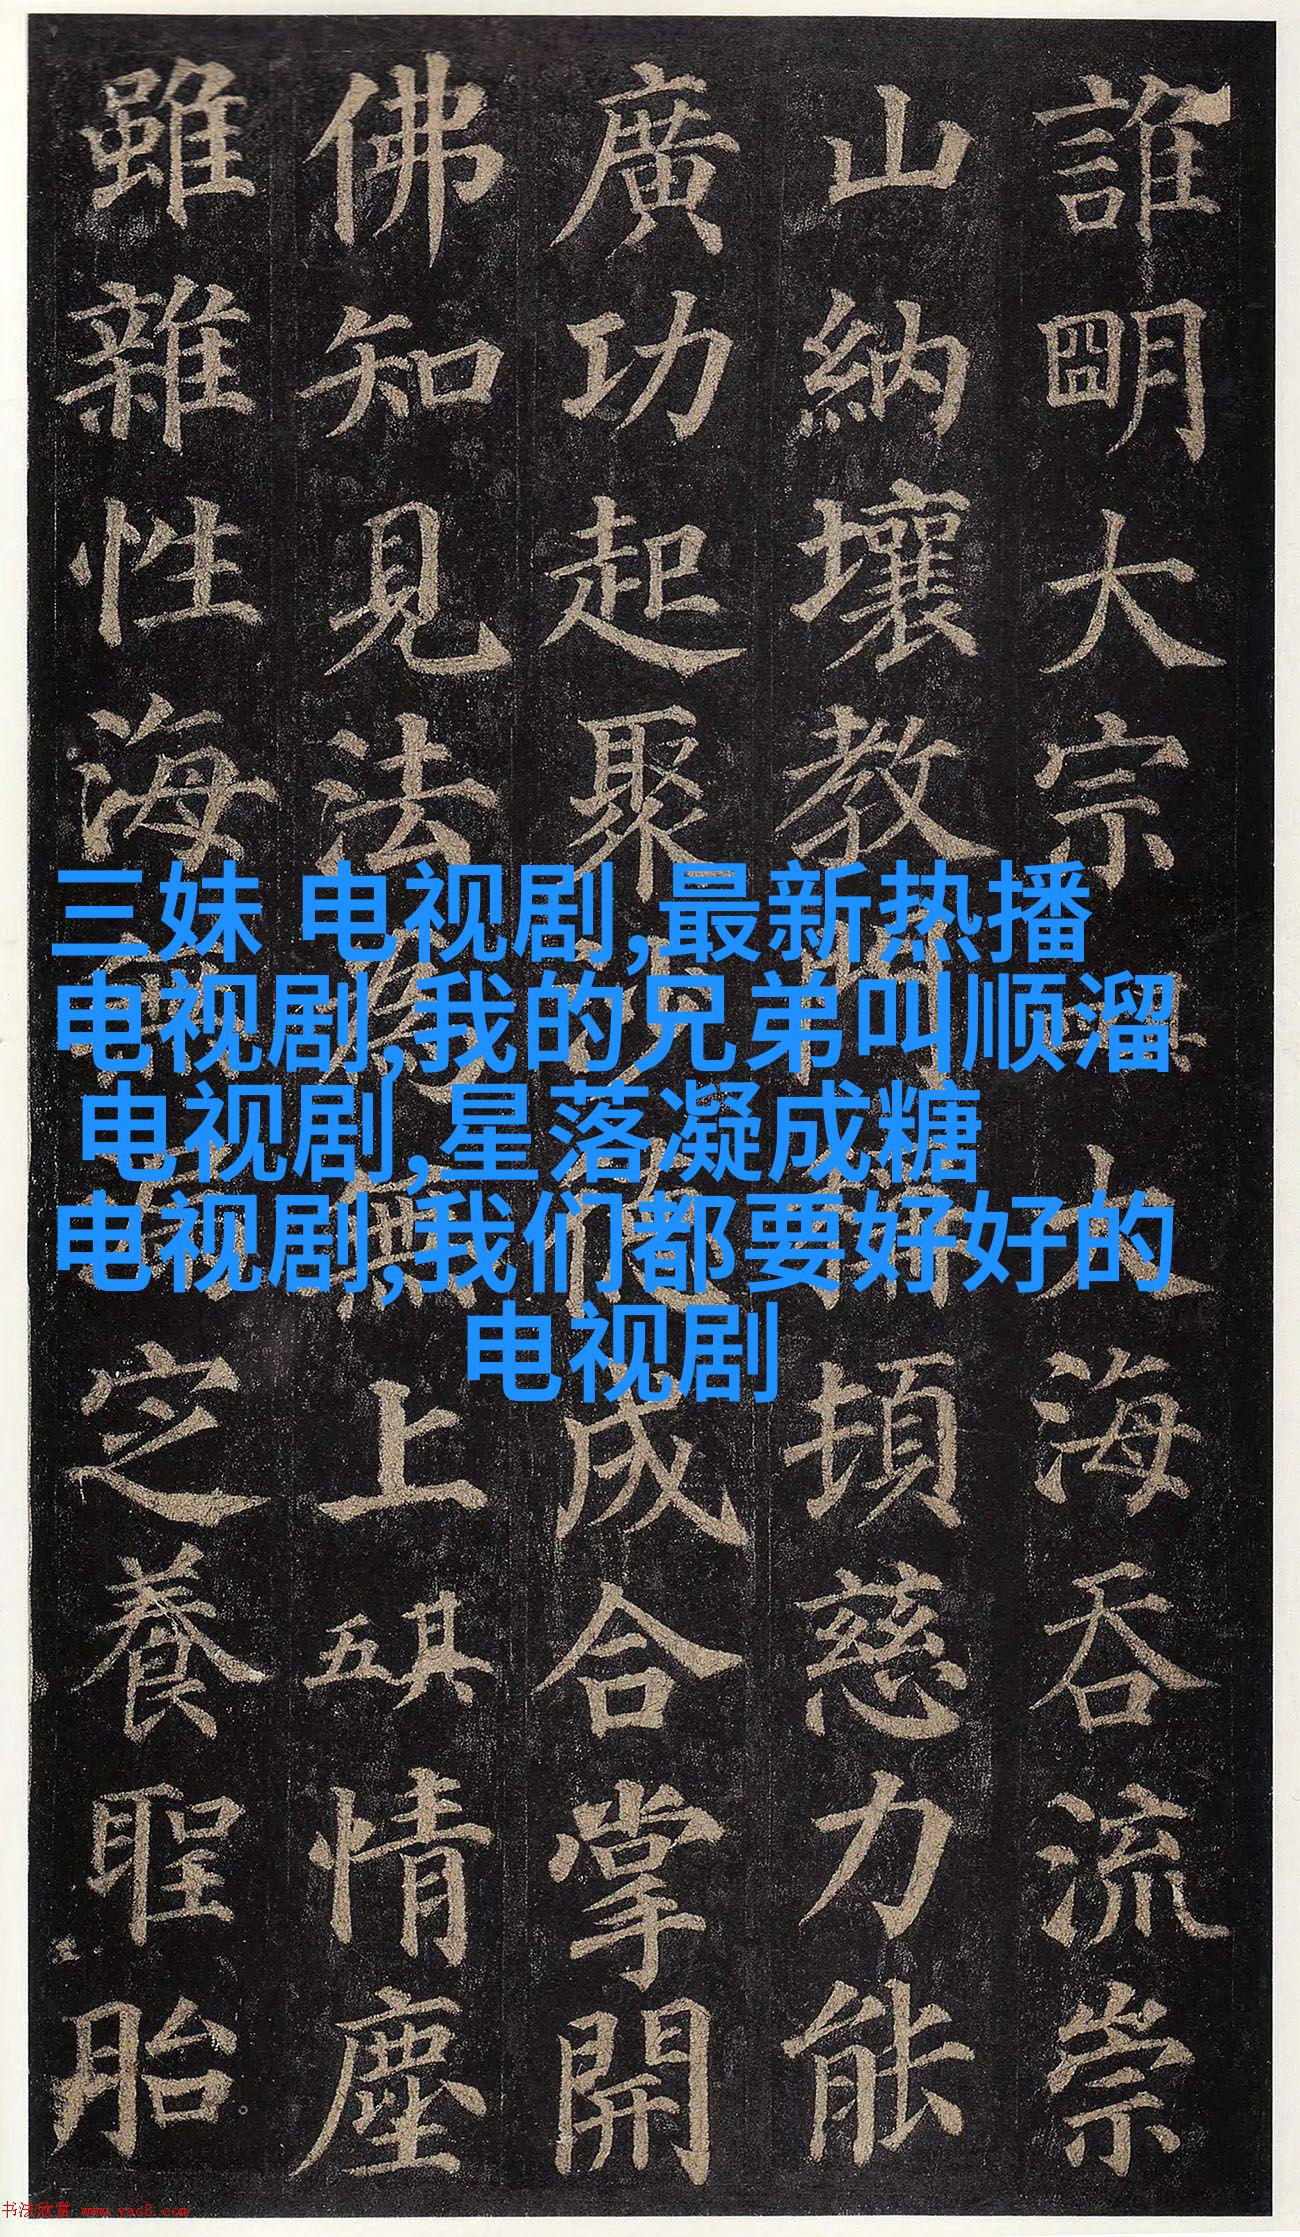 誰明大宗其大海吞流崇
山納壤教門頓慈力能
廣功起聚成合掌開
佛知見法為無上其五情塵
雖雜性海定養聖胎
三妹 电视剧,最新热播
电视剧,我的兄弟叫顺溜
电视剧,星落凝成糖
电视剧,我们都要好好的
电视剧
书法欣赏 www.yac8.com